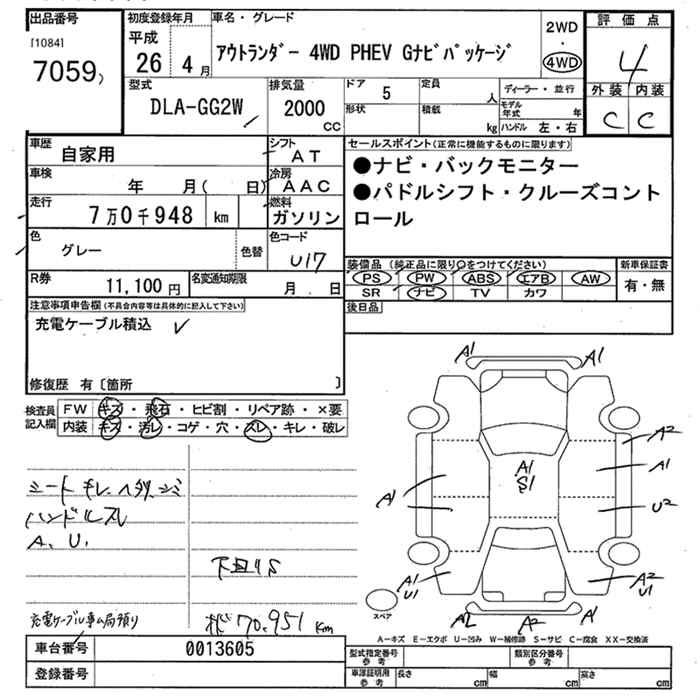 出品番号
[1084]
7059
初度登録年月
平成
26 4月
車名・グレード
アウトランダー 4WD PHEV Gナビパッケージ
2WD
・
4WD
評価点
4
外装 内装
C C
型式
DLA-GG2W
排気量
2000
CC
ドア 5
形状
定員 人
積載 kg
ディーラー・並行
モデル年式 年
ハンドル 左・右
車歴
自家用
シフト
AT
車検
年 月( 日)
冷房
AAC
走行
7万0千948 km
燃料
ガソリン
色
グレー
色替
色コード
U17
R券
11,100円
名変通知期限
月 日
セールスポイント(正常に機能するものに限ります)
●ナビ・バックモニター
●パドルシフト・クルーズコント
ロール
装備品(純正品に限り○をつけてください)
PS PW ABS エアB AW
SR ナビ TV カワ
新車保証書
有・無
後日品
注意事項申告欄(不具合内容等は具体的に記入して下さい)
充電ケーブル積込
修復歴 有〔箇所 〕
検査員
記入欄
FW キズ・飛石・ヒビ割・リペア跡・×要
内装 キズ・汚レ・コゲ・穴・スレ・キレ・破レ
シート キレ、ヘタリ、シミ
ハンドルスレ
A、U、
下回りS
充電ケーブル車ム局預り
70.951 km
A1 A1
A2
A1
A1
S1
A1
U2
A1
U1
A2
U1
A2 A2 A1
スペア
A-キズ E-エクボ U-凹み W-補修跡 S-サビ C-腐食 XX-交換済
車台番号
0013605
登録番号
型式指定番号
参考
類別区分番号
参考
車庫証明用
参考
長さ cm 幅 cm 高さ cm